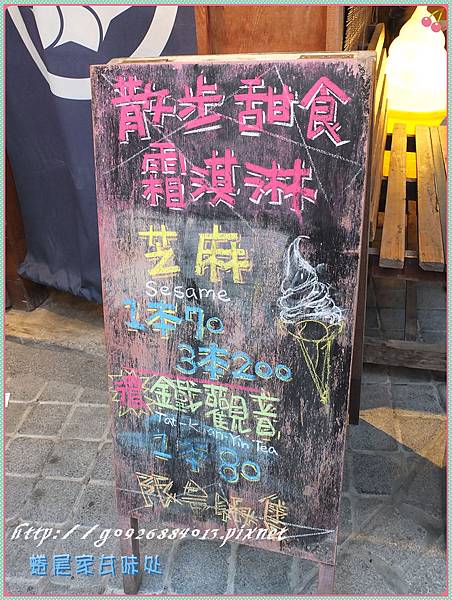 散步甜食
霜淇淋
芝麻
Sesame
1本70
3本200
濃 鐵觀音
Tat-Kuan-Yin Tea
1本80
http://g0926884013.pixnet
蜷尾家甘味処